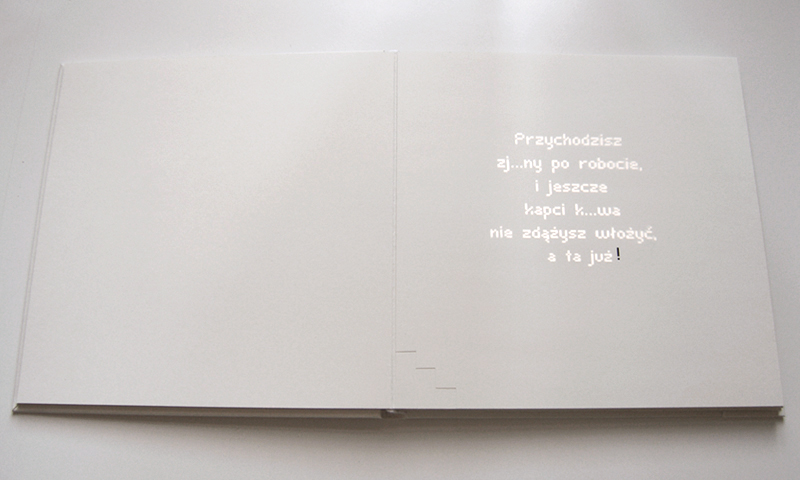 Przychodzisz
zj...ny po robocie,
i jeszcze
kapci k...wa
nie zdążysz włożyć,
a ta już!